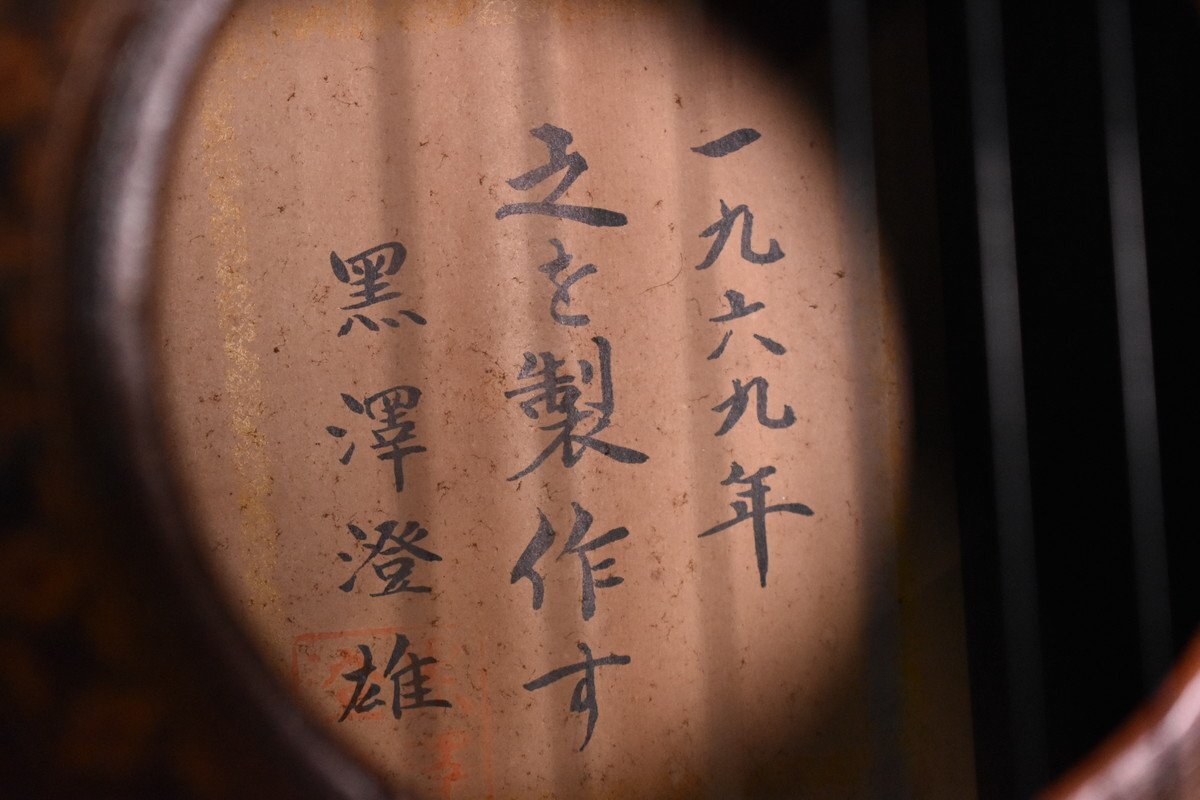 一九六九年
之を製作す
黑澤澄雄